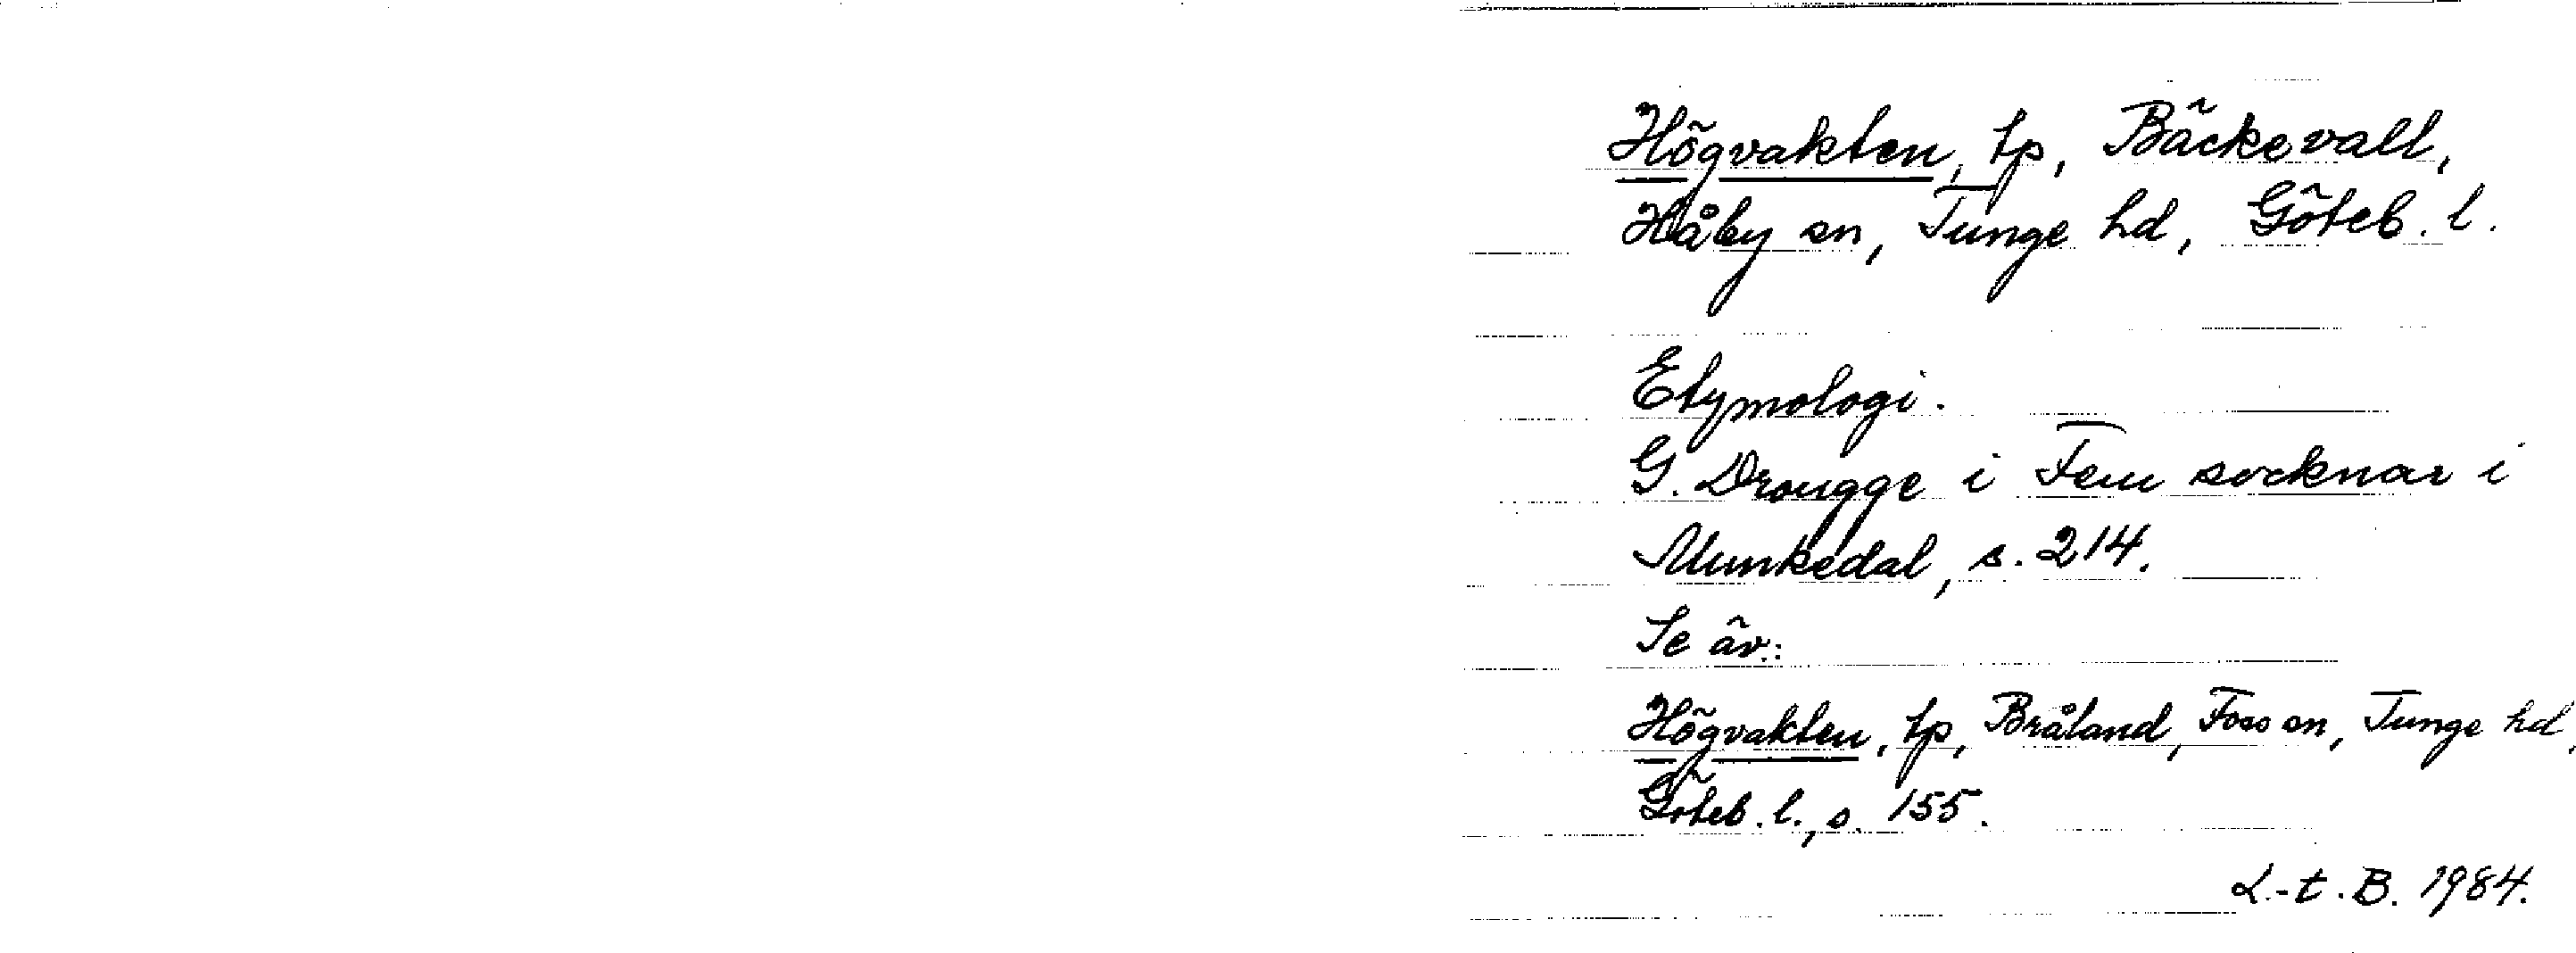 Högvakten, tp, Bäckevall,
Håby sn, Tunge hd, Göteb. l.
Etymologi.
G. Drougge i Fem socknar i
Munkedal, s. 214.
Se äv.:
Högvakten, tp, Bråland, Foss sn, Tunge hd,
Göteb. l., s. 155.
L.-t. B. 1984.